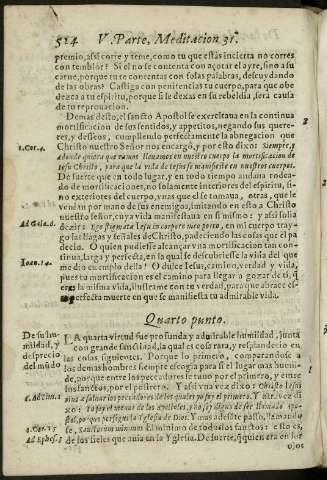 524 V. Parte, Meditacion 3f.
premio, assi corre y teme, como tu que estàs incierto no corres
con temblor? Si el no se contenta con açotar el ayre, sino a su
carne, porque tu te contentas con solas palabras, descuydando
de las obras? Castiga con penitencias tu cuerpo, para que obe
dezca a tu espiritu, porque si le dexas en su rebeldia, serà causa
de tu reprouacion.
Demas desto, el sancto Apostol se exercitaua en la continua
mortificacion de los sentidos, y appetitos, negando sus quere-
res, y desseos, cumpliendo perfectamente la abnegacion que
Christo nuestro Señor nos encargò, y por esto dixo: Siempre, y
2. Cor. 4.
adonde quiera que vamos lleuamos en nuestro cuerpo la mortificacion de
Iesu Christo, para que la vida de Iesus se manifieste en nuestros cuerpos.
De suerte que en todo lugar, y en todo tiempo andaua rodea-
do de mortificaciones, no solamente interiores del espiritu, si-
no exteriores del cuerpo, vnas que el se tomaua, otras, que le
venian por mano de sus enemigos, imitando en esto a Christo
nuestro señor, cuya vida manifestaua en si mismo: y assi solia
Ad Gala. 6.
dezir: Ego stigmata Iesu in corpore meo porto, en mi cuerpo tray-
go las llagas y señales de Christo, padeciendo las cosas que el pa
decio. O quien pudiesse alcançar vna mortificacion tan con-
tinua, larga y perfecta, en la qual se descubriesse la vida del que
me dio exemplo della? O dulce Iesus, camino, verdad y vida,
Ioan. 14.
pues tu mortificacion es el camino para llegar a gozar de ti, q̃
eres la misma vida, ilustrame con tu verdad, para que abrace es-
ta perfecta muerte en que se manifiesta tu admirable vida.
Quarto punto.
De su humildad, y desprecio del mũdo
LA quarta virtud fue profunda y admirable humildad, junta
con grande sanctidad, la qual es cosa rara, y resplandecio en
las cosas siguientes. Porque lo primero, comparandose a
los demas hombres siempre escogia para si el lugar mas humil-
de, porque entre los peccadores se tuuo por el primero, y entre
los sanctos por el postrero. Y assi vna vez dixo: Christo Iesus
1. Ad Tim. 1
vino a saluar los peccadores de los quales yo soy el primero. Y otra vez di
xo: Yo soy el menor de los apostoles, y no soy digno de ser llamado apo-
stol, porque persegui la Yglesia de Dios. Y mas adelante passò, llamando
1. Cor. 15
se, Sanctorum minimum. El minimo de todos los sanctos: esto es,
Ad Ephes. 3
de los fieles que auia en la Yglesia. De suerte, q̃ quien era en los
ojos